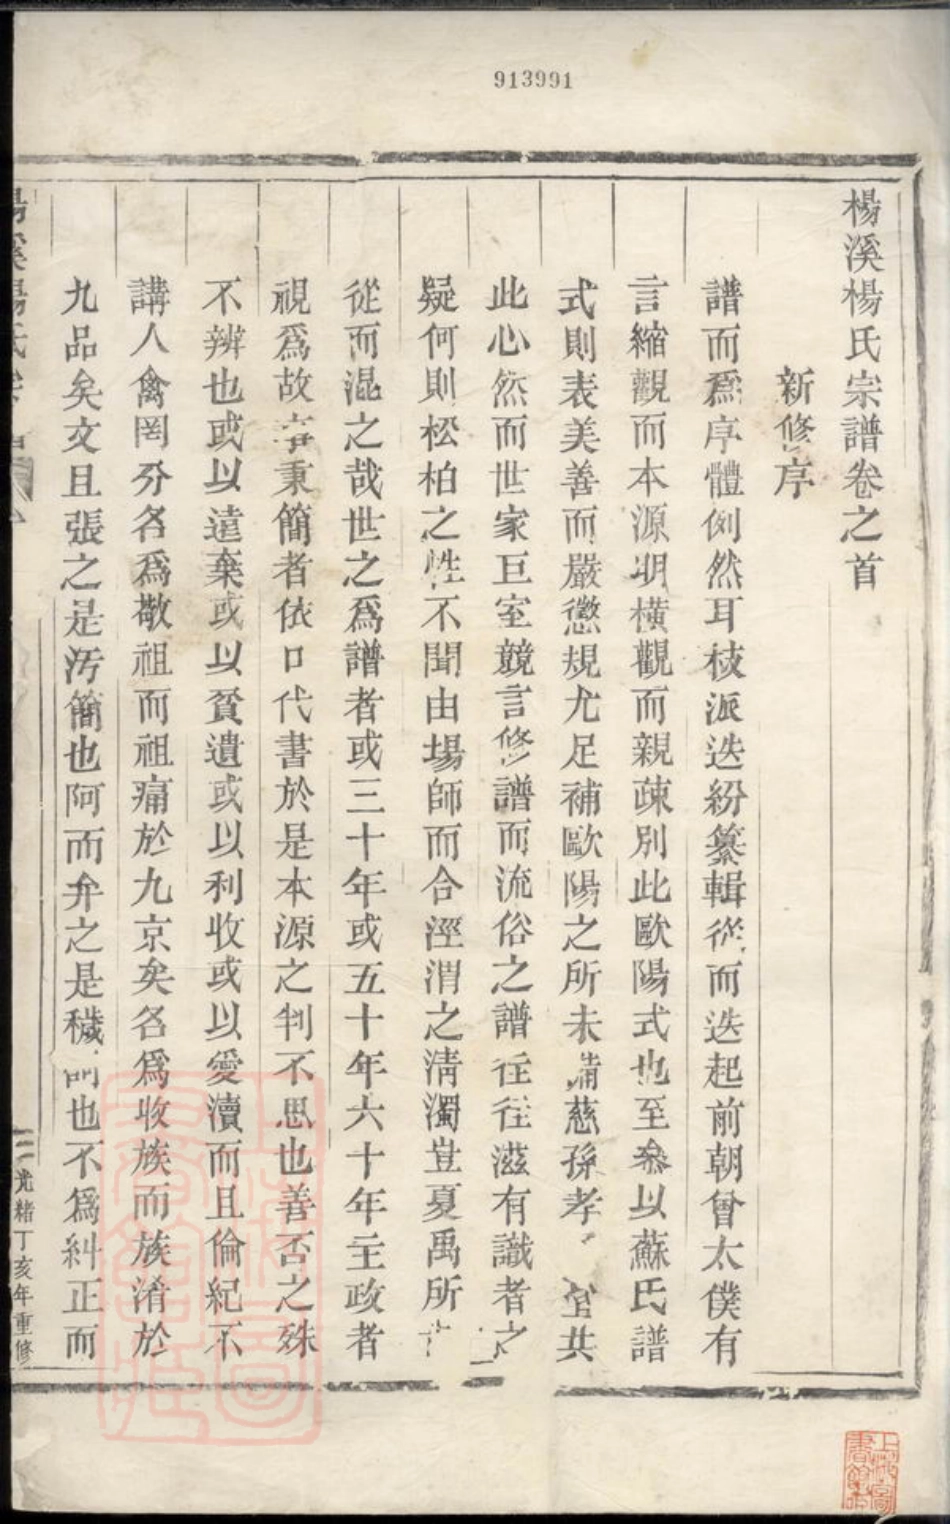 913991
楊溪楊氏宗譜卷之首
新修序
譜而爲序體例然耳枝派迭紛纂輯從而迭起前朝曾太僕有
言縮觀而本源明橫觀而親疎別此歐陽式也至叅以蘇氏譜
式則表美善而嚴懲規尤足補歐陽之所未備慈孫孝共
此心然而世家巨室競言修譜而流俗之譜往往滋有識者之
疑何則松柏之性不聞由場師而合涇渭之淸濁豈夏禹所
從而混之哉世之爲譜者或三十年或五十年六十年主政者
視爲故秉簡者依口代書於是本源之判不思也善否之殊
不辨也或以遠棄或以貧遺或以利收或以愛瀆而且倫紀不
講人禽罔分名爲敬祖而祖痛於九京矣名爲收族而族淆於
九品矣文且張之是汚簡也阿而弁之是穢詞也不爲糾正而
光緒丁亥年重修